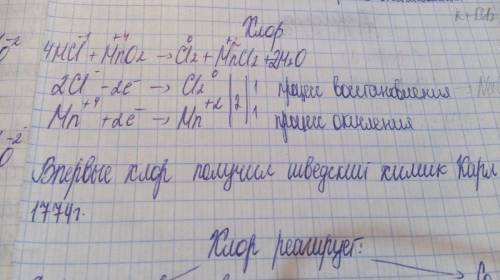 Хлор
4HCl⁻ + Mn⁺⁴O2 → Cl2⁰ + Mn⁺²Cl2 + 2H2O
2Cl⁻ - 2e⁻ → Cl2⁰ | 2 | 1 процесс восстановления
Mn⁺⁴ + 2e⁻ → Mn⁺² | 1 процесс окисления
Впервые хлор получил шведский химик Карл
1774г.
Хлор реагирует: